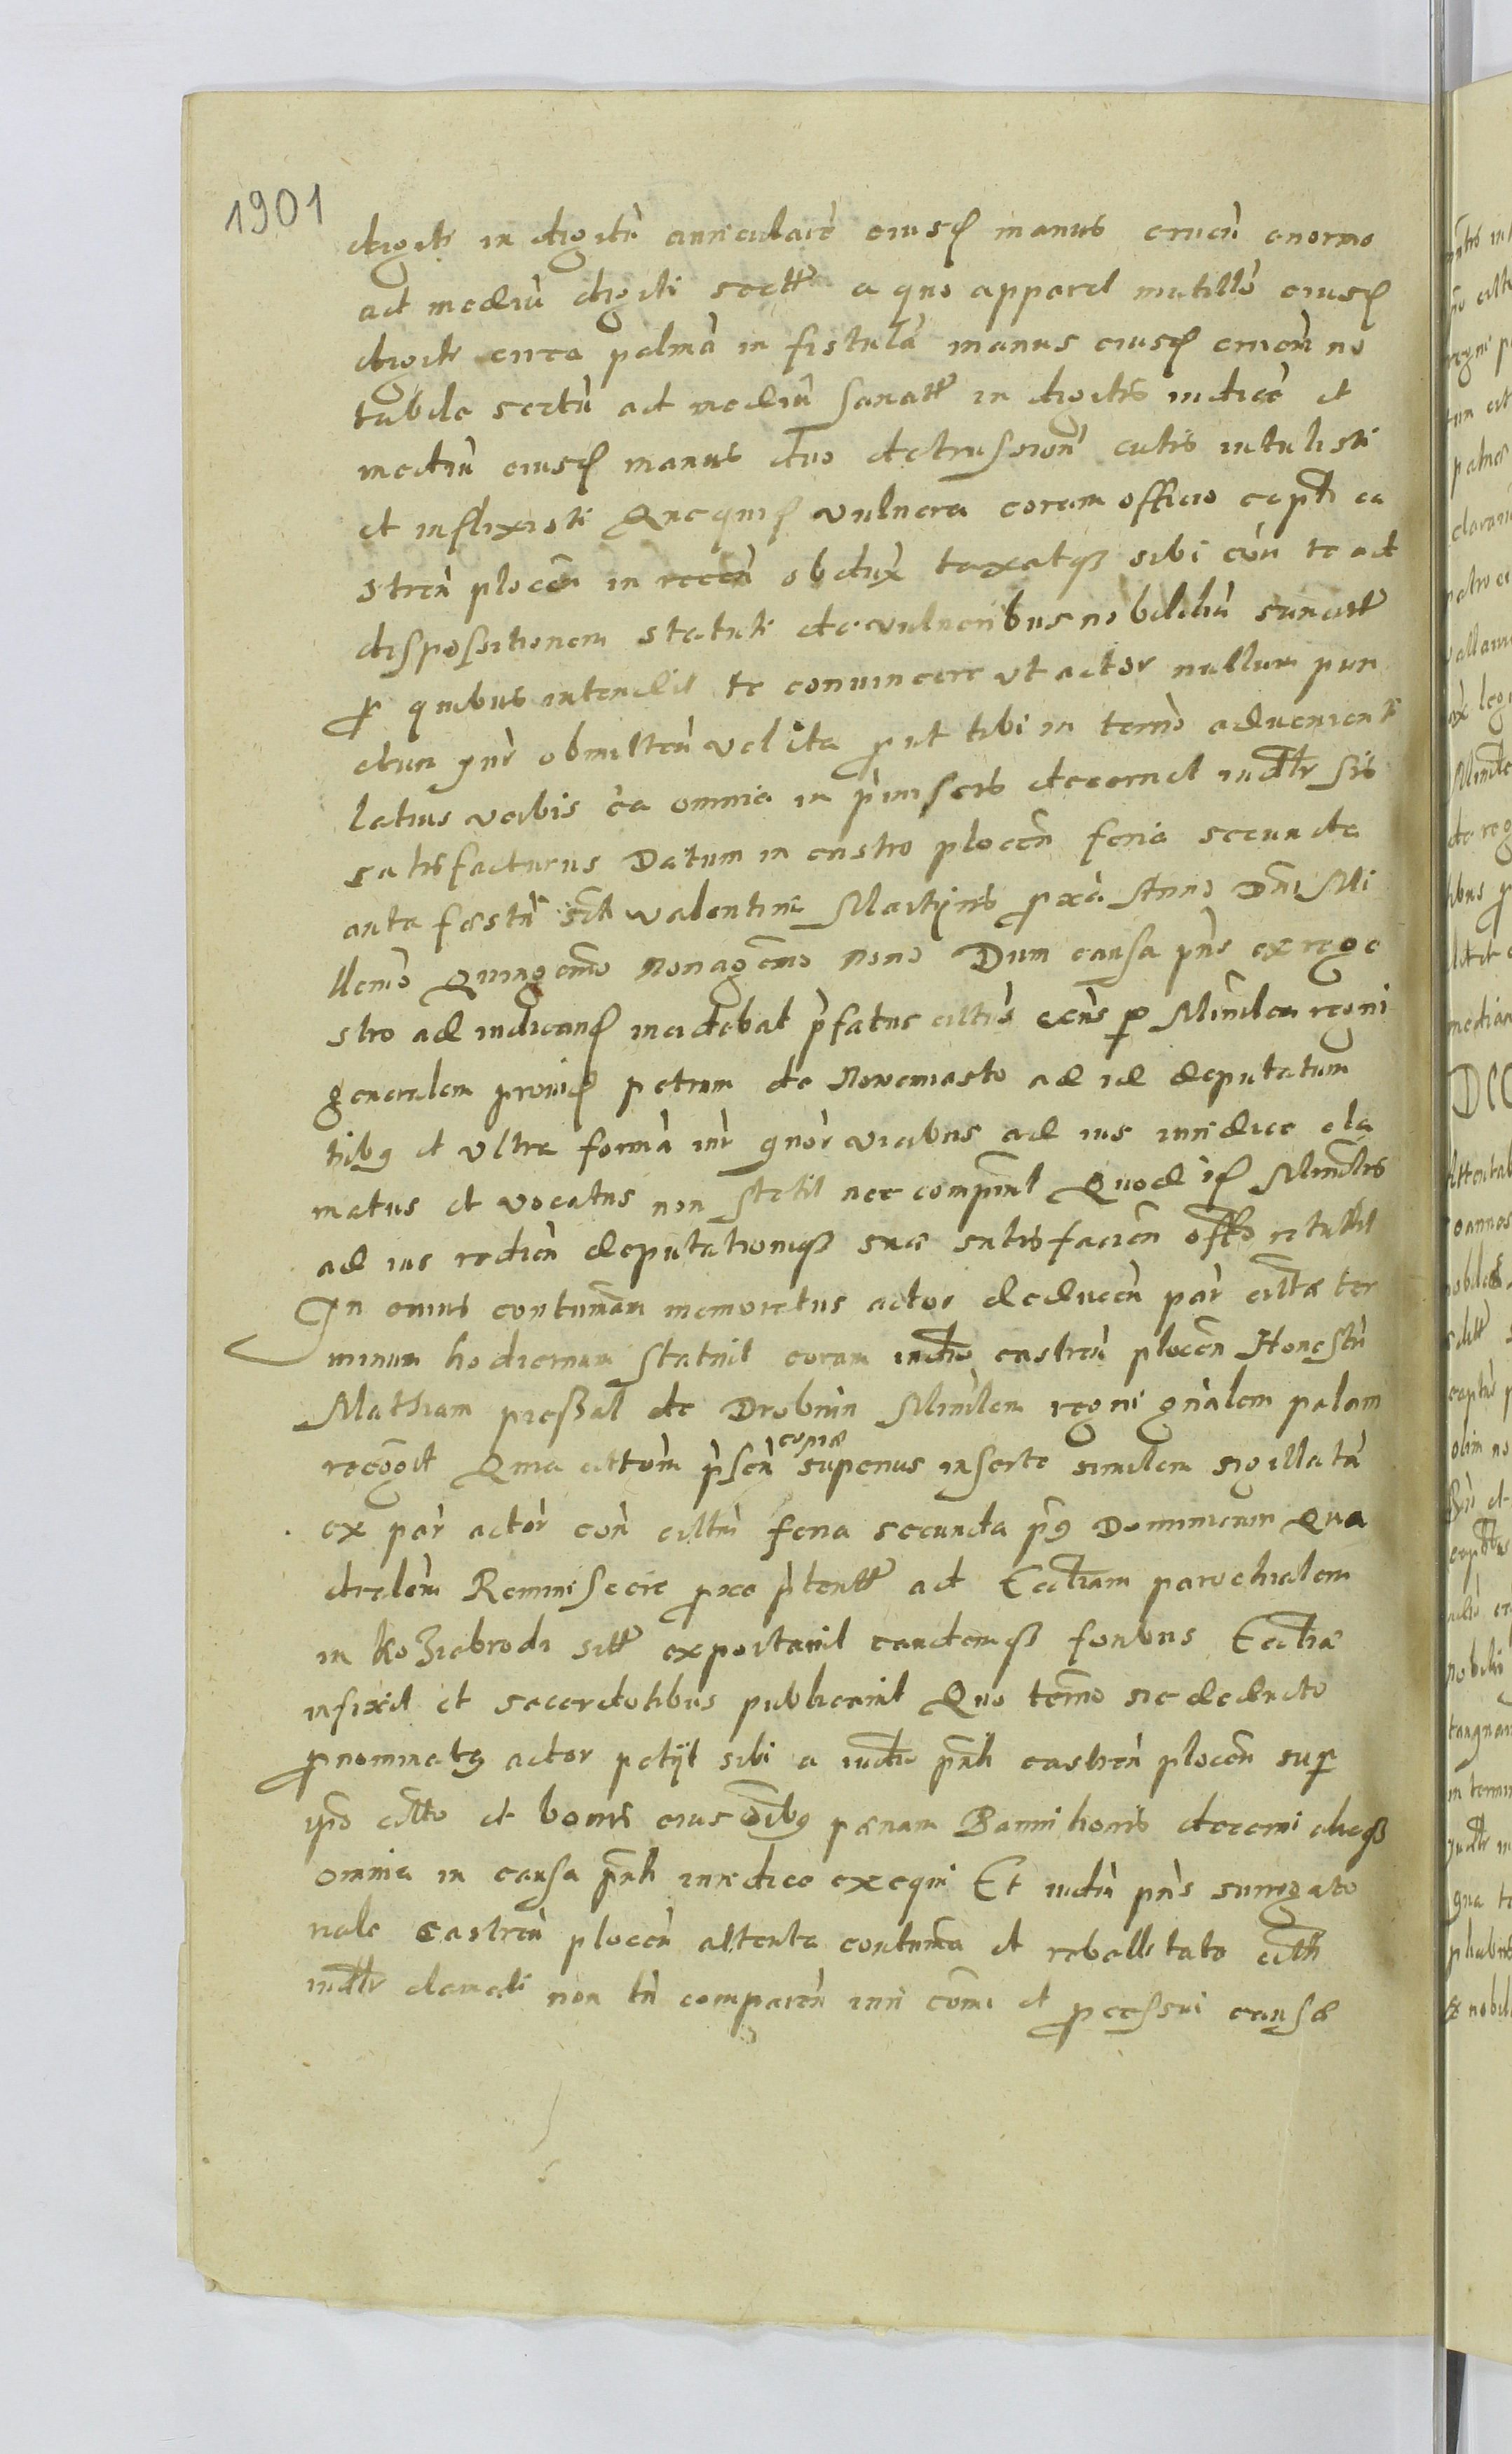 1901
digiti in digitũ auricularẽ eiusd manus cruciũ enorme
ad mediũ digiti sectũ a quo apparet mutillõ eiusd
digiti circa palmã in fistulã manus eiusd crucim no
tabile sectũ ad mediũ sanatũ in digitis indice et
mediũ eiusd manus duo detrussionẽ cutis intulisti
et inflixisti Quequid vulnera coram officio capti ca
stren plocen in recen obdux taxatqȝ sibi cõn te ad
dispositionem statuti de vulneribus nobiliũ
p quibus intendit te conuincere vt actor nullum pun
ctum iur obmitten velit ita put tibi in termo aduenienti
latius verbis ea omnia in pmissis decernet iudtr sis
satisfacturus Datum in castro plocen feria secunda
ante festũ scti Valentini Martyris pxã Anno Dni Mi
llemo Quingemo nonagemo nono Dum causa pns ex rege
stro ad iudicand incidebat pfatus cittũs p Minlem regni
generalem prouid petrum de Nowemiasto ad id deputatum
tribȝ et vltra formã iur quor vicibus ad ius iuridice cla
matus et vocatus non stetit nec compuit Quod id Minlis
ad ius redien deputationiqȝ sue satisfacien offo retulit
In cuius contumam memoratus actor deducen par cittã ter
minum hodiernum statuit coram iudio castren plocen Honestũ
Mathiam pressal de Drobnin Minlem regni gnalem palam
recogit Quia cittom psen copiæ superius inserte similem sigillatã
ex par actor con cittũ feria secunda pȝ Dominicam Qua
dralem Reminiscere pxe pteritũ ad Ecctiam parochialem
in koziebrodi sitt exportauit eandemqȝ foribus Ecctiæ
infixit et sacerdotibus publicauit Quo termo sic deducto
pnominatȝ actor petijt sibi a iudio pnti castren plocen sup
ipo citto et bonis eius oibȝ pœnam Bannitionis decerni aliaqȝ
omnia in causa pnti iuridice exequi Et iudiũ pns surrogato
riale Castren plocen attenta contuma et rebellitate citti
iudtr clamati non tñ comparen iuri comi et pcessui causæ